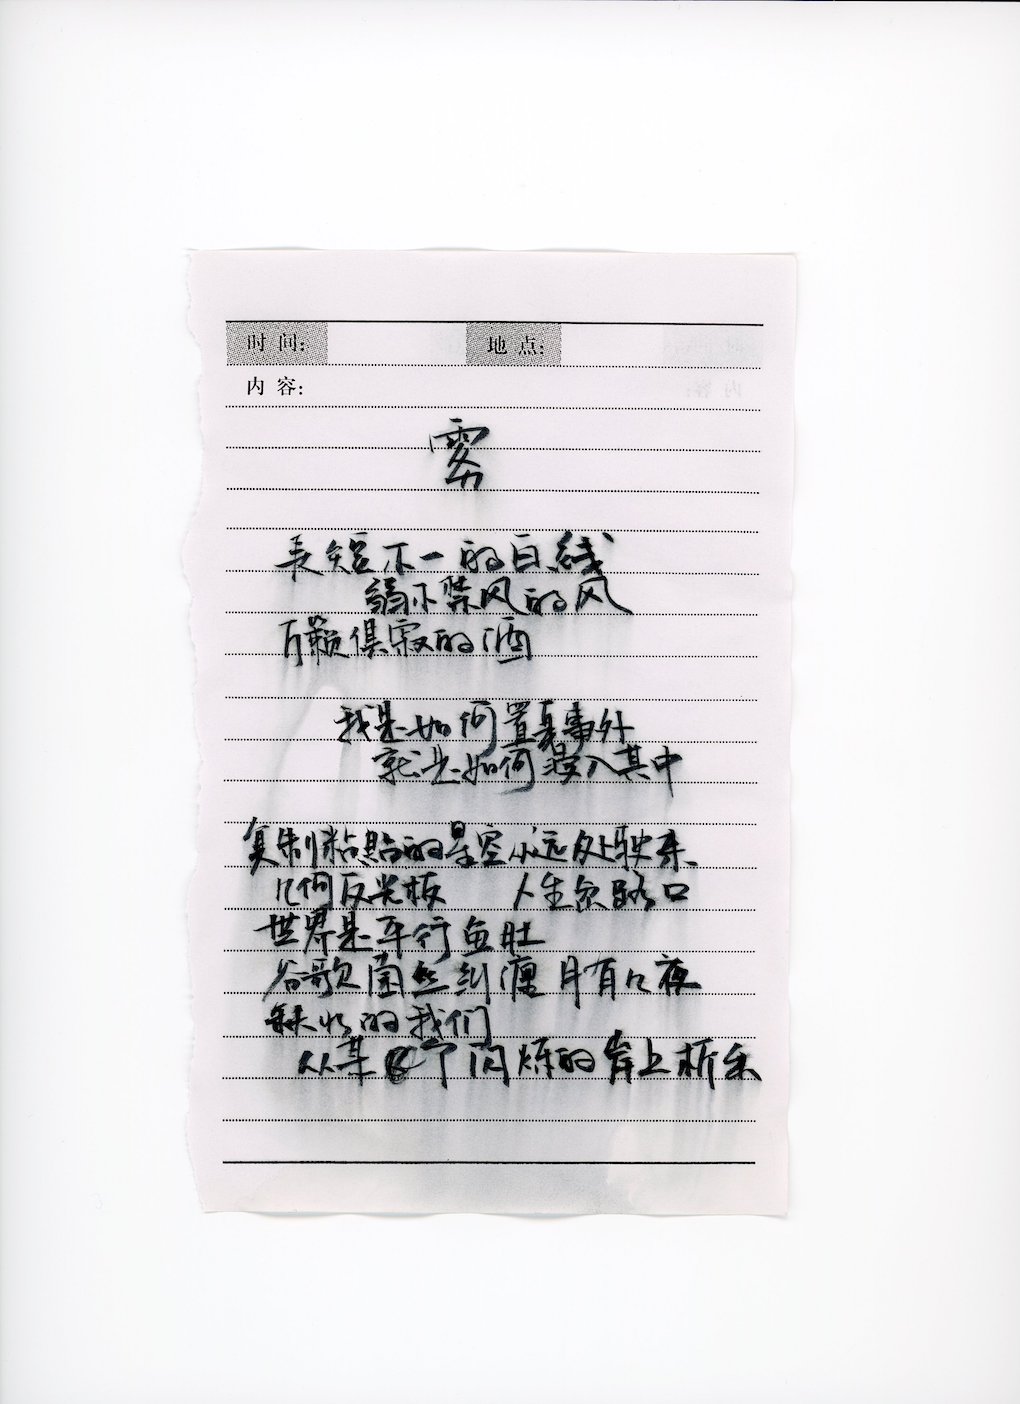 时间： 地点：
内容：
雾
长短不一的白线
弱不禁风的风
万籁俱寂的酒
我是如何置身事外
就是如何浸入其中
复制粘贴的星空从远处驶来
几何反光板 人生会路口
世界是平行鱼肚
谷歌菌丝纠缠 月有几夜
的我们
从某个闪烁的岸上折